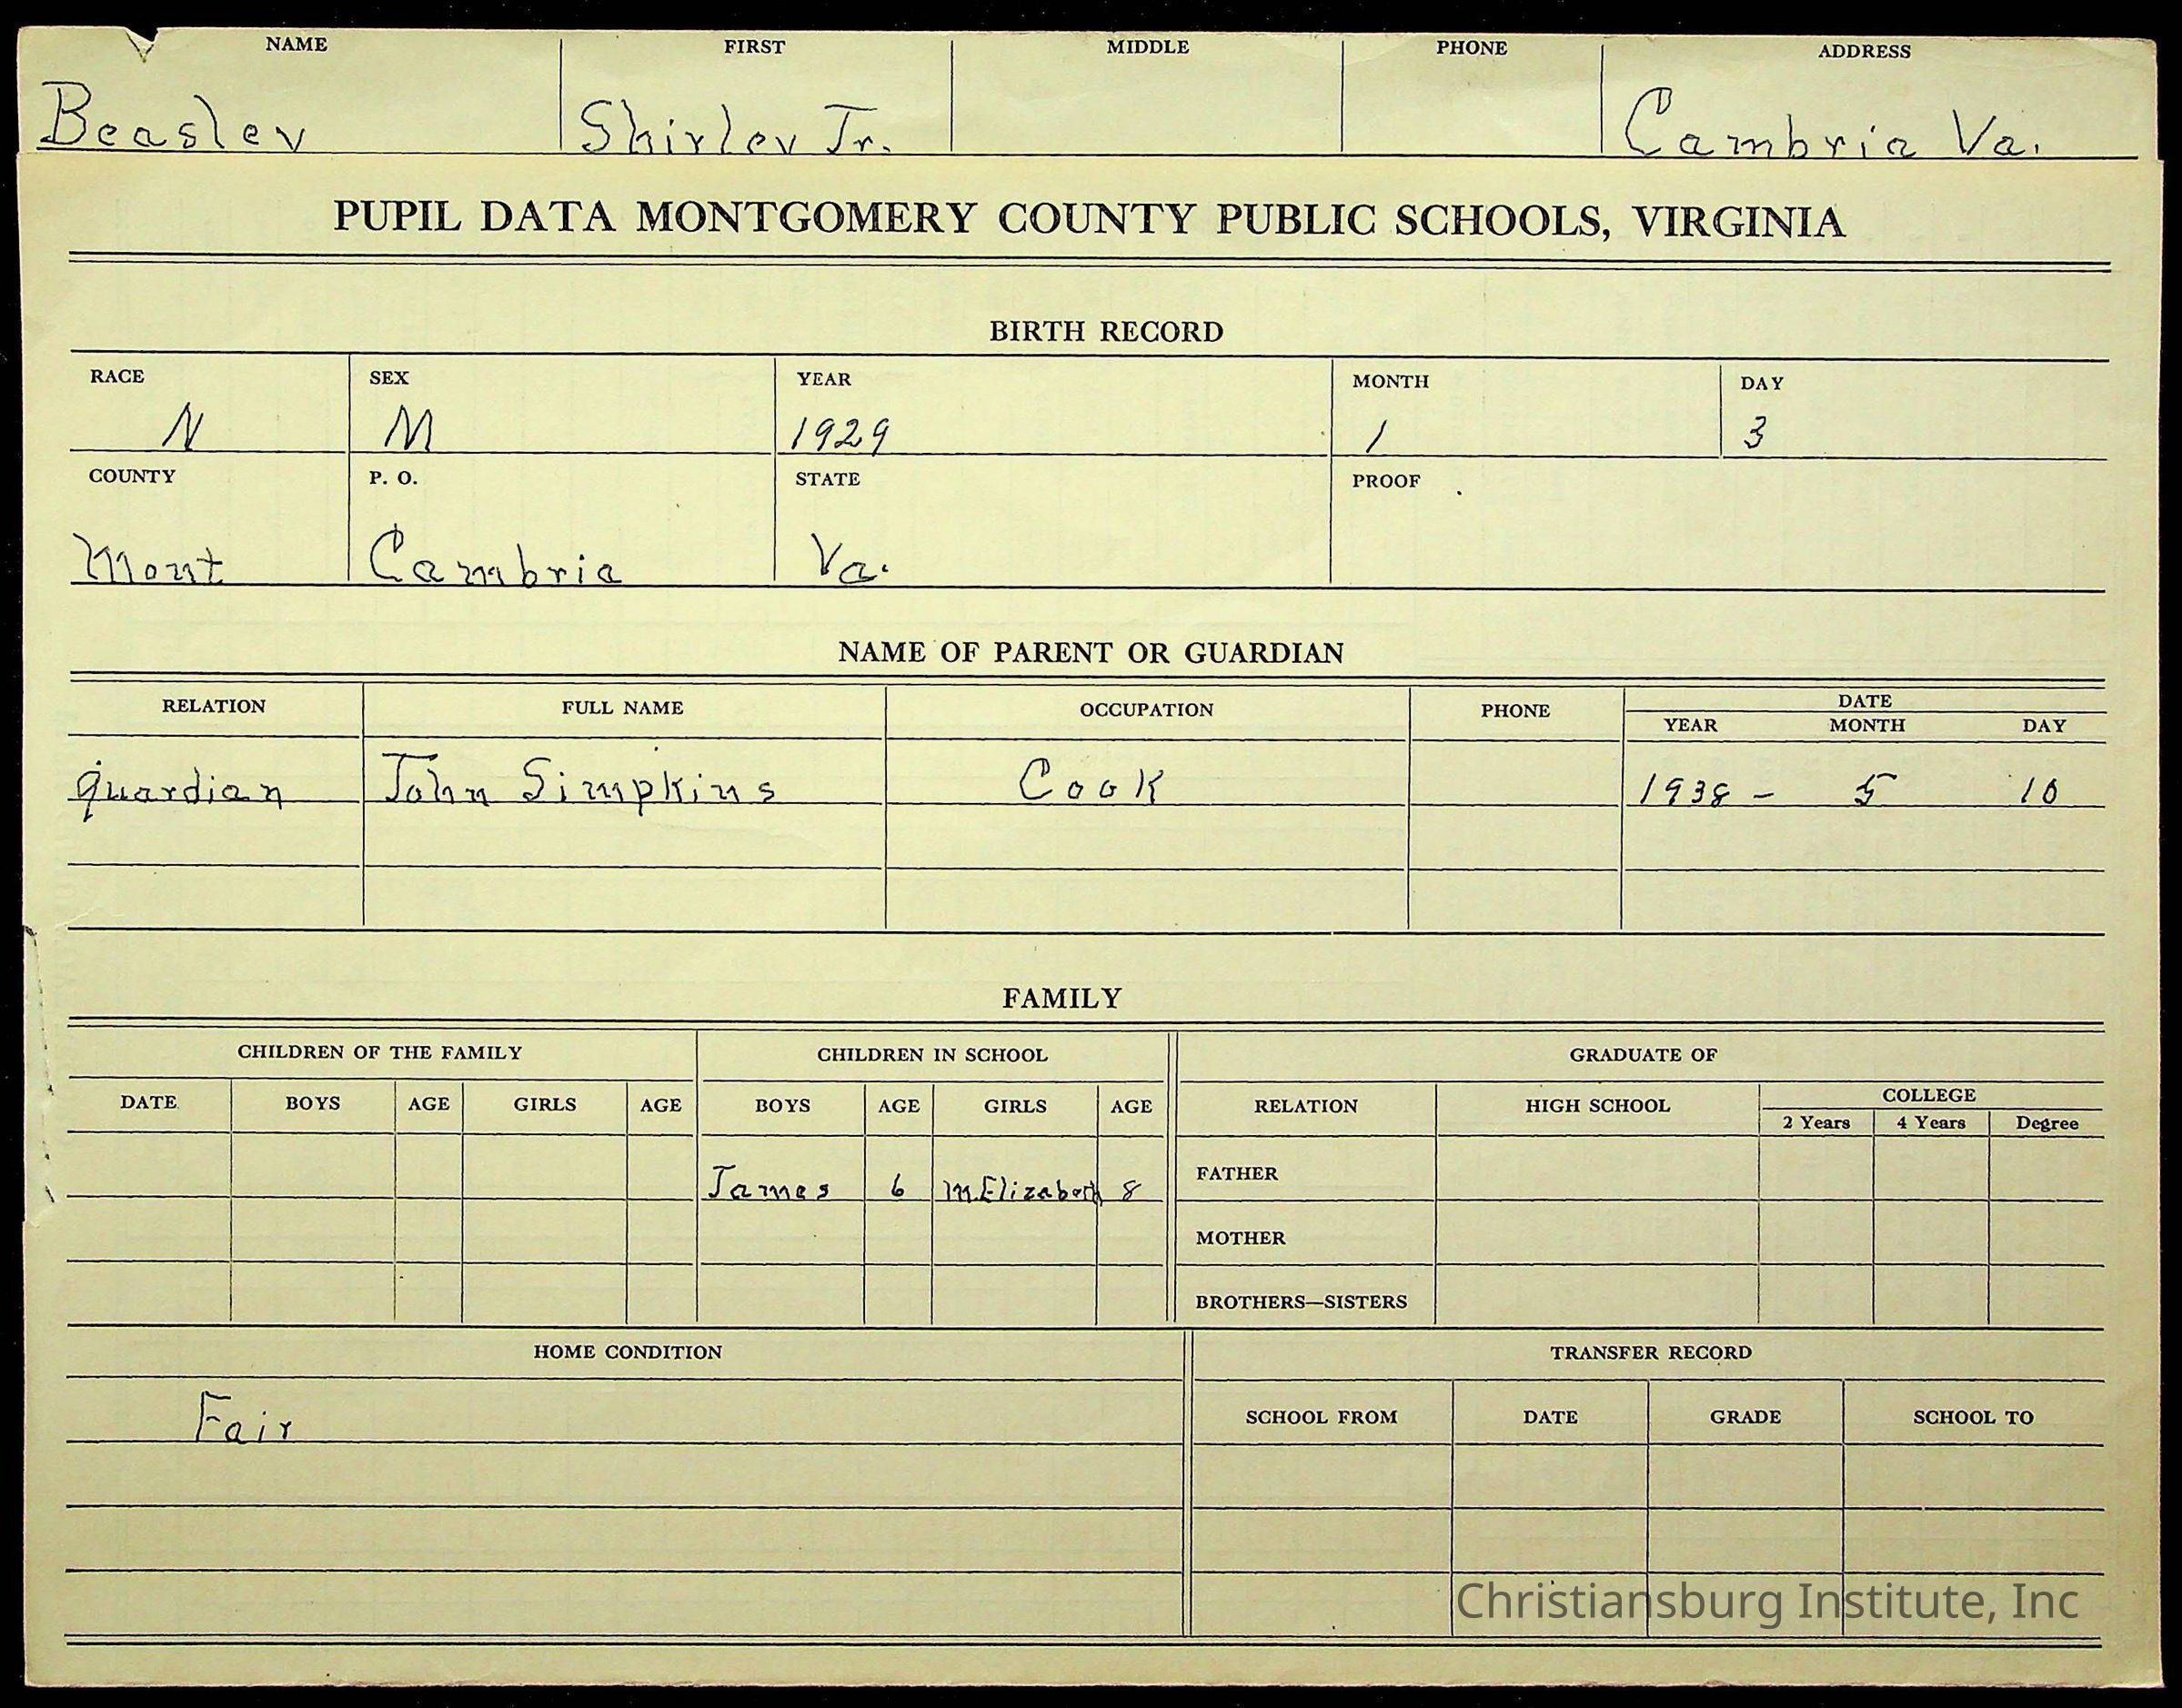 NAME FIRST MIDDLE PHONE ADDRESS
Beasley Shirley Jr. Cambria Va.
PUPIL DATA MONTGOMERY COUNTY PUBLIC SCHOOLS, VIRGINIA
BIRTH RECORD
RACE SEX YEAR MONTH DAY
N M 1929 1 3
COUNTY P. O. STATE PROOF
Mont Cambria Va.
NAME OF PARENT OR GUARDIAN
RELATION FULL NAME OCCUPATION PHONE DATE
YEAR MONTH DAY
guardian John Simpkins Cook 1938 - 5 10
FAMILY
CHILDREN OF THE FAMILY CHILDREN IN SCHOOL GRADUATE OF
DATE BOYS AGE GIRLS AGE BOYS AGE GIRLS AGE RELATION HIGH SCHOOL COLLEGE
2 Years 4 Years Degree
James 6 M.Elizabeth 8 FATHER
MOTHER
BROTHERS—SISTERS
HOME CONDITION TRANSFER RECORD
Fair SCHOOL FROM DATE GRADE SCHOOL TO
Christiansburg Institute, Inc